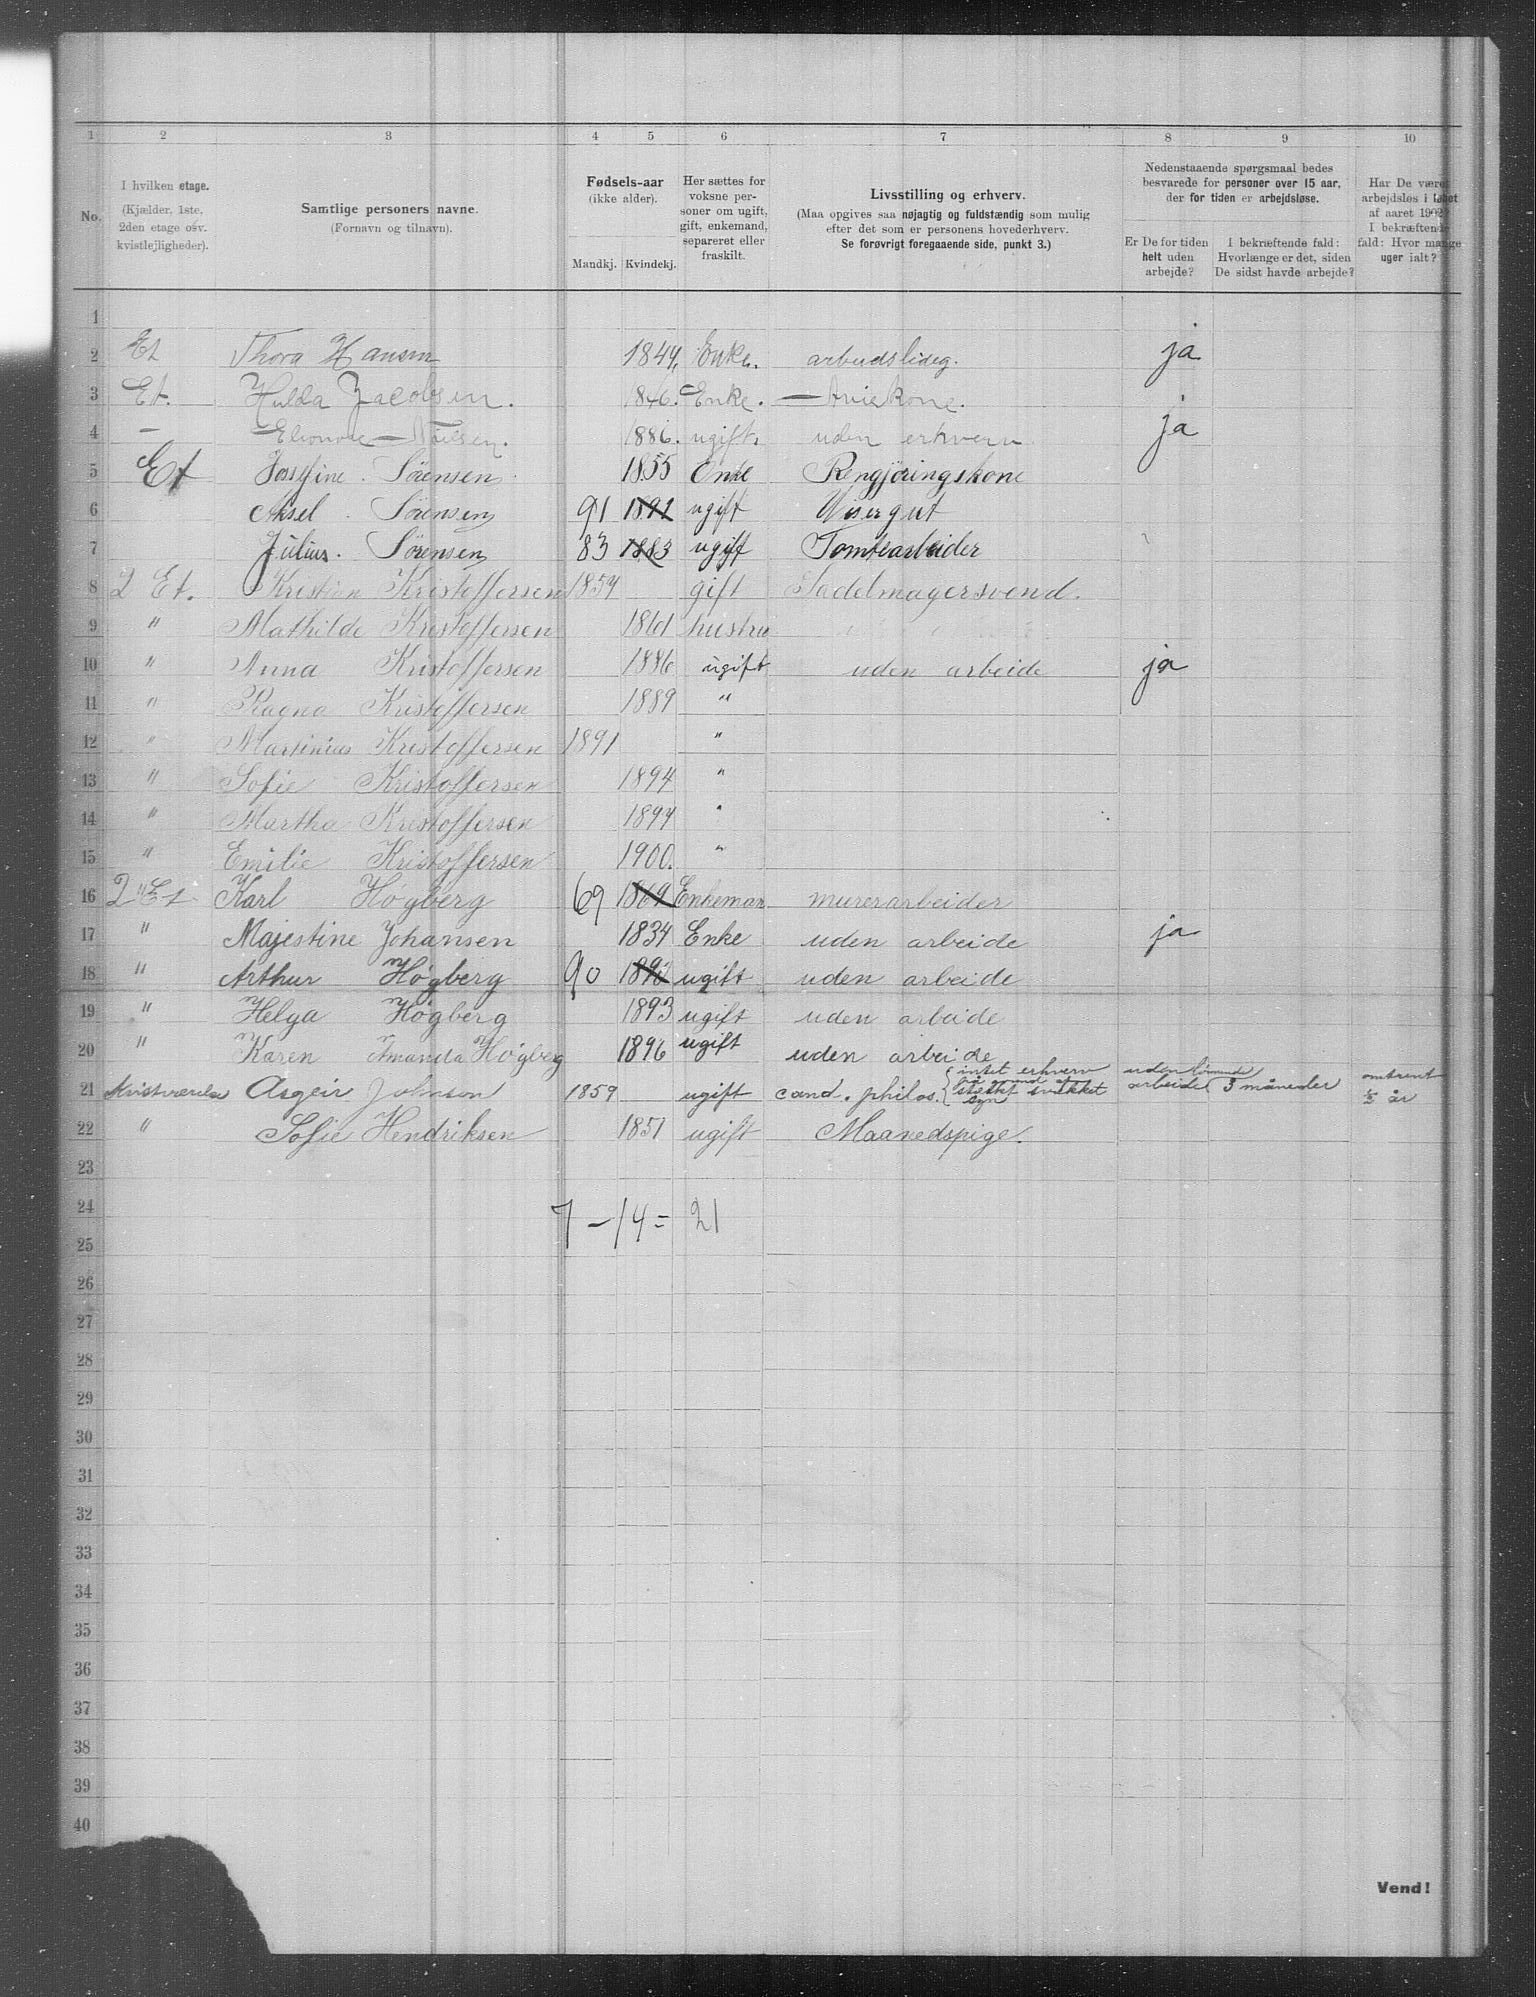 1 2 3 4 5 6 7 8 9 10
No.
I hvilken etage.
(Kjælder, 1ste,
2den etage osv.
kvistlejligheder).
Samtlige personers navne.
(Fornavn og tilnavn).
Fødsels-aar
(ikke alder).
Mandkj. Kvindekj.
Her sættes for
voksne per-
soner om ugift,
gift, enkemand,
separeret eller
fraskilt.
Livsstilling og erhverv.
(Maa opgives saa nøjagtig og fuldstændig som mulig
efter det som er personens hovederhverv.
Se forøvrigt foregaaende side, punkt 3.)
Nedenstaaende spørgsmaal bedes
besvarede for personer over 15 aar,
der for tiden er arbejdsløse.
Er De for tiden
helt uden
arbejde?
I bekræftende fald:
Hvorlænge er det, siden
De sidst havde arbejde?
Har De været
arbejdsløs i løbet
af aaret 1902?
I bekræftende
fald: Hvor mange
uger ialt?
1
2 Et Thora Hansen 1844, Enke. ja
3 Et. Hulda Jacobsen. 1846. Enke.
4 — Eleonore Nilsen. 1886. ugift. uden erhverv ja
5 Et Jossfine Sørensen 1855 Enke Rengjøringskone
6 Aksel Sørensen 91 1891 ugift Visergut
7 Julius. Sørensen 83 1883 ugift Tomtearbeider
8 2 Et. Kristian Kristoffersen 1859 gift Sadelmagersvend.
9 " Mathilde Kristoffersen 1861 hustru
10 " Anna Kristoffersen 1886 ugift uden arbeide ja
11 " Ragna Kristoffersen 1889 "
12 " Martinius Kristoffersen 1891 "
13 " Sofie Kristoffersen 1894 "
14 " Martha Kristoffersen 1897 "
15 " Emilie Kristoffersen 1900. "
16 2 Et Karl Høgberg 69 1869 Enkeman murerarbeider
17 " Majestine Johansen 1834 Enke uden arbeide ja
18 " Arthur Høgberg 90 1890 ugift uden arbeide
19 " Helga Høgberg 1893 ugift uden arbeide
20 " Karen Amanda Høgberg 1896 ugift uden arbeide
21 Kvistværelse Asgeir Johnson 1859 ugift cand. philos. { intet erhverv på grund af stærkt svækket syn uden lønnende arbeide 3 måneder omtrent ½ år
22 " Sofie Hendriksen 1851 ugift Maanedspige.
23
24
7 – 14 = 21
25
26
27
28
29
30
31
32
33
34
35
36
37
38
39
40
Vend!